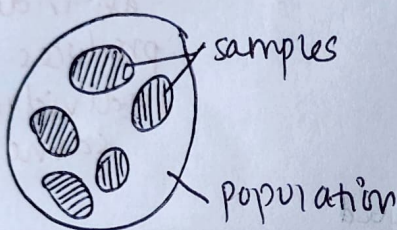 samples
population